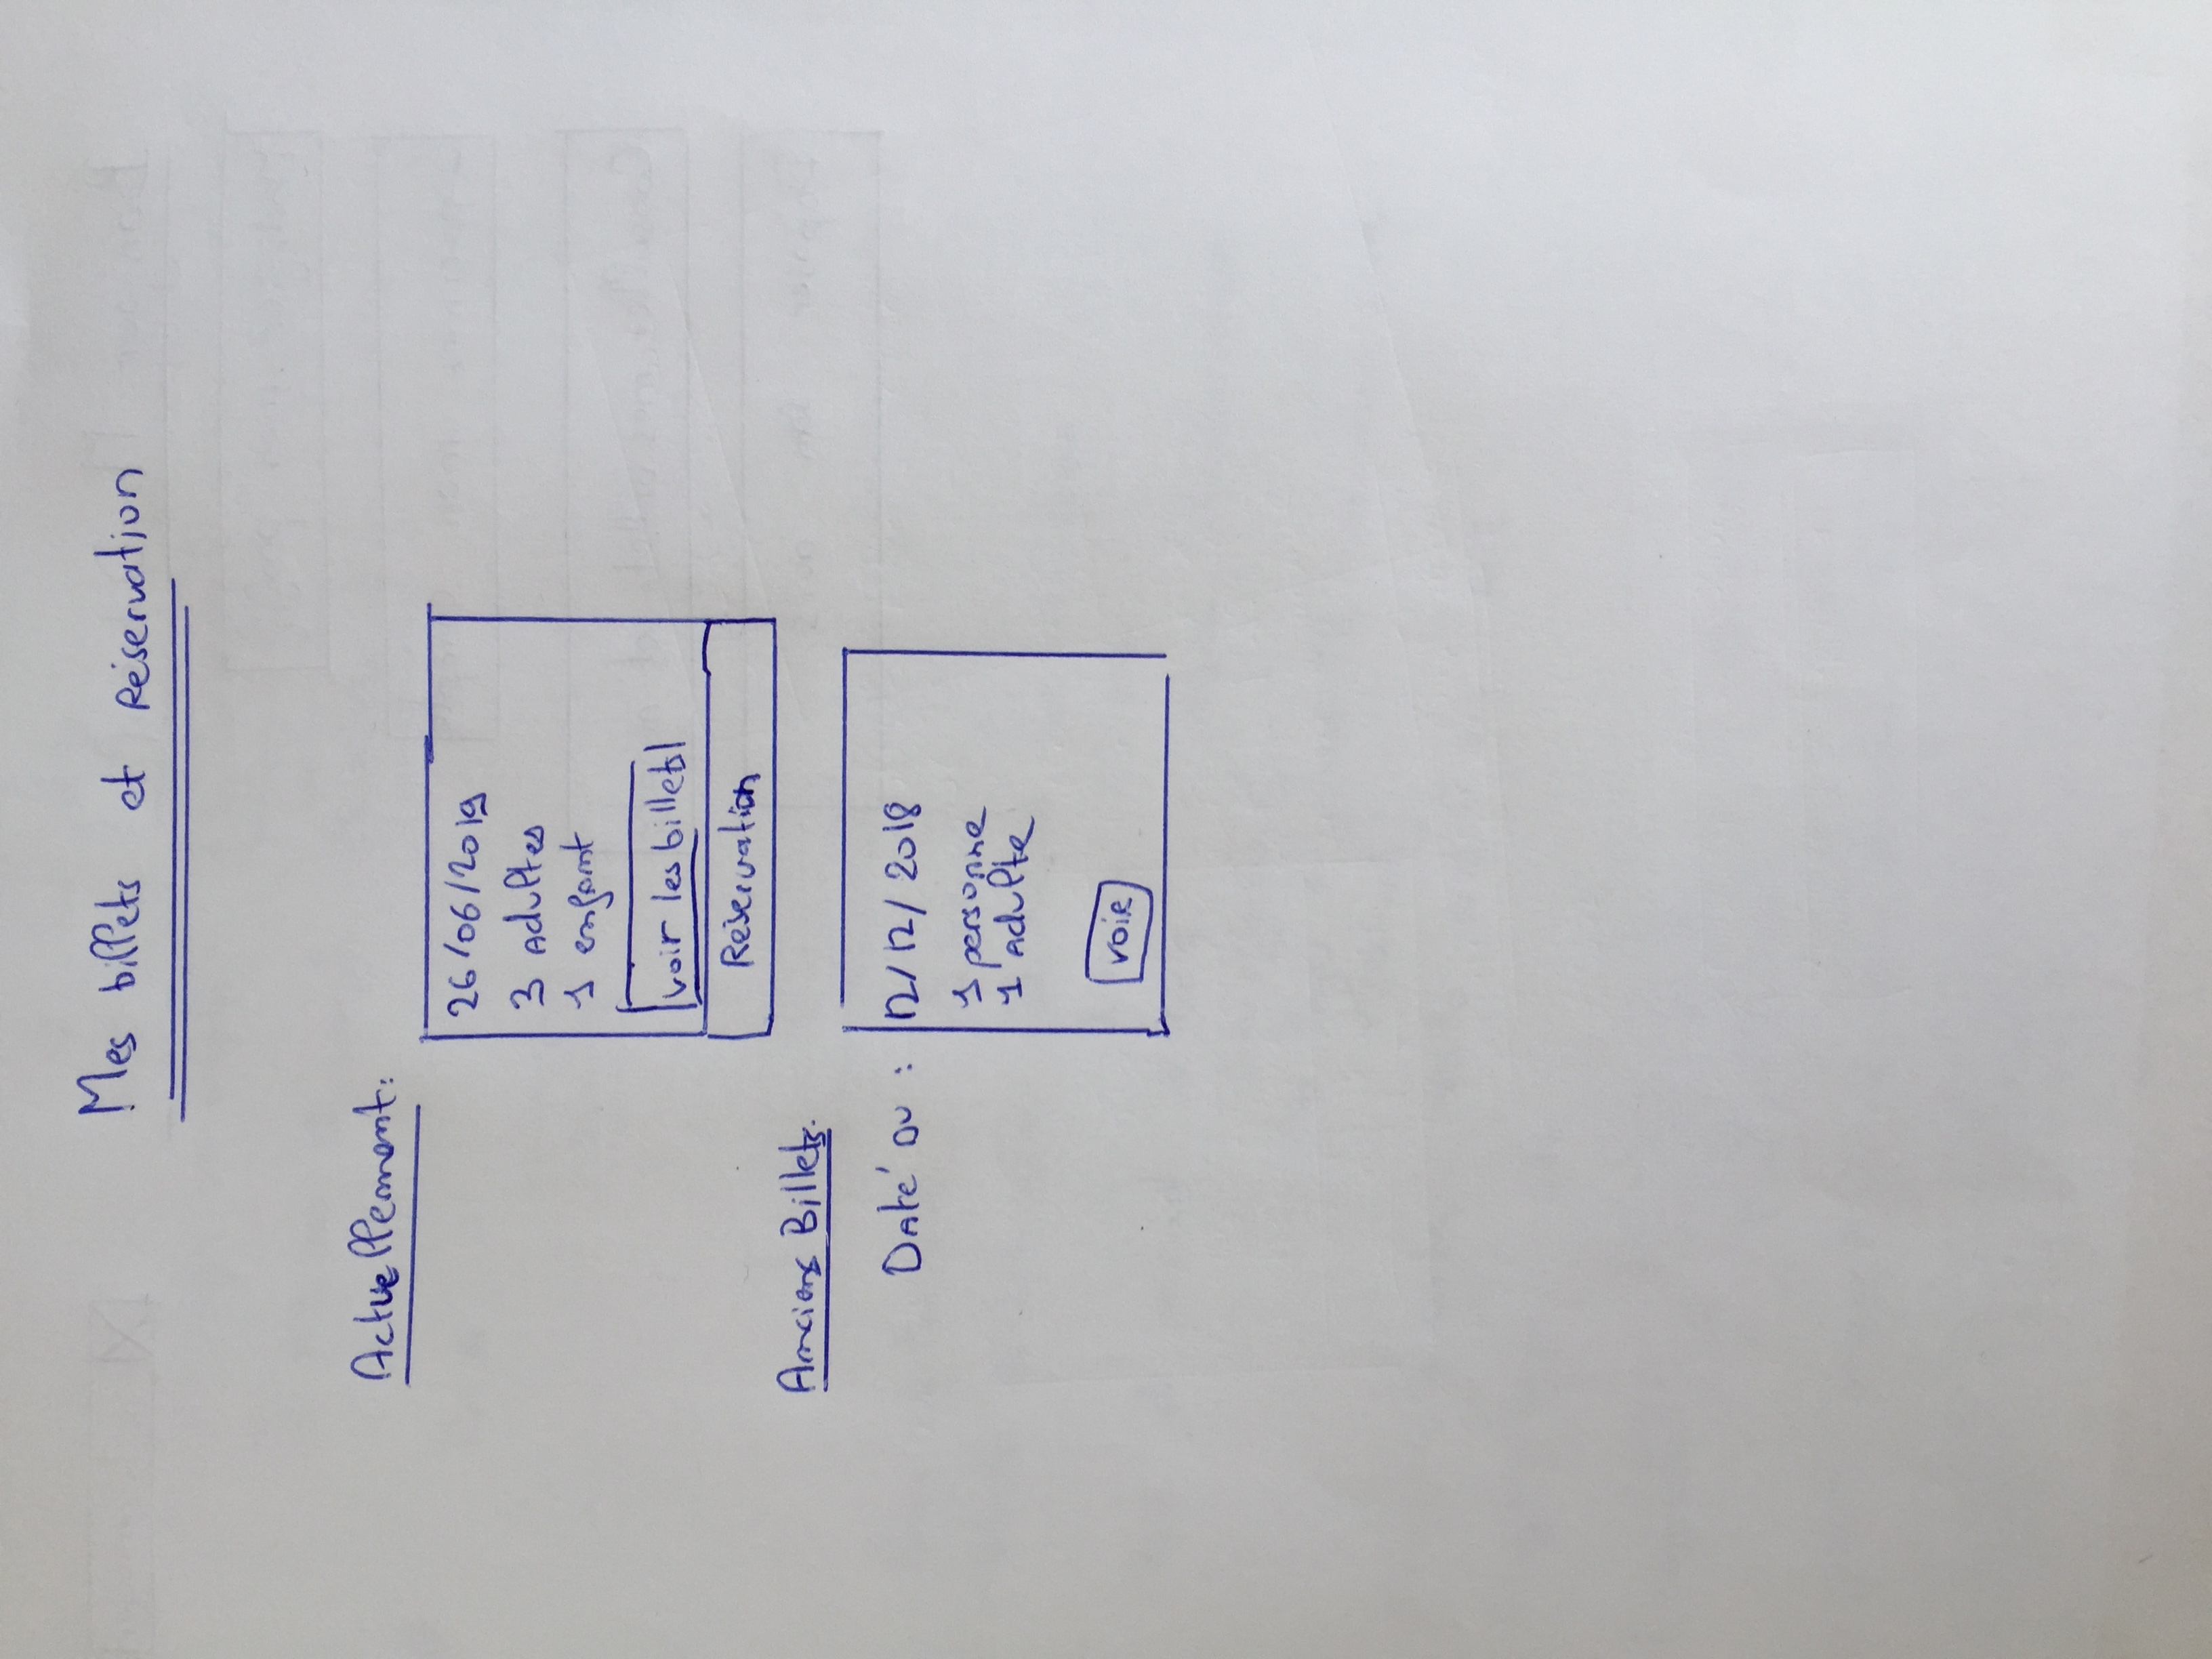 Mes billets et Réservation
Actuellement:
26/06/2019
3 Adultes
1 enfant
voir les billets
Réservation
Anciens Billets.
Daté du :
12/12/2018
1 personne
1 Adulte
voir